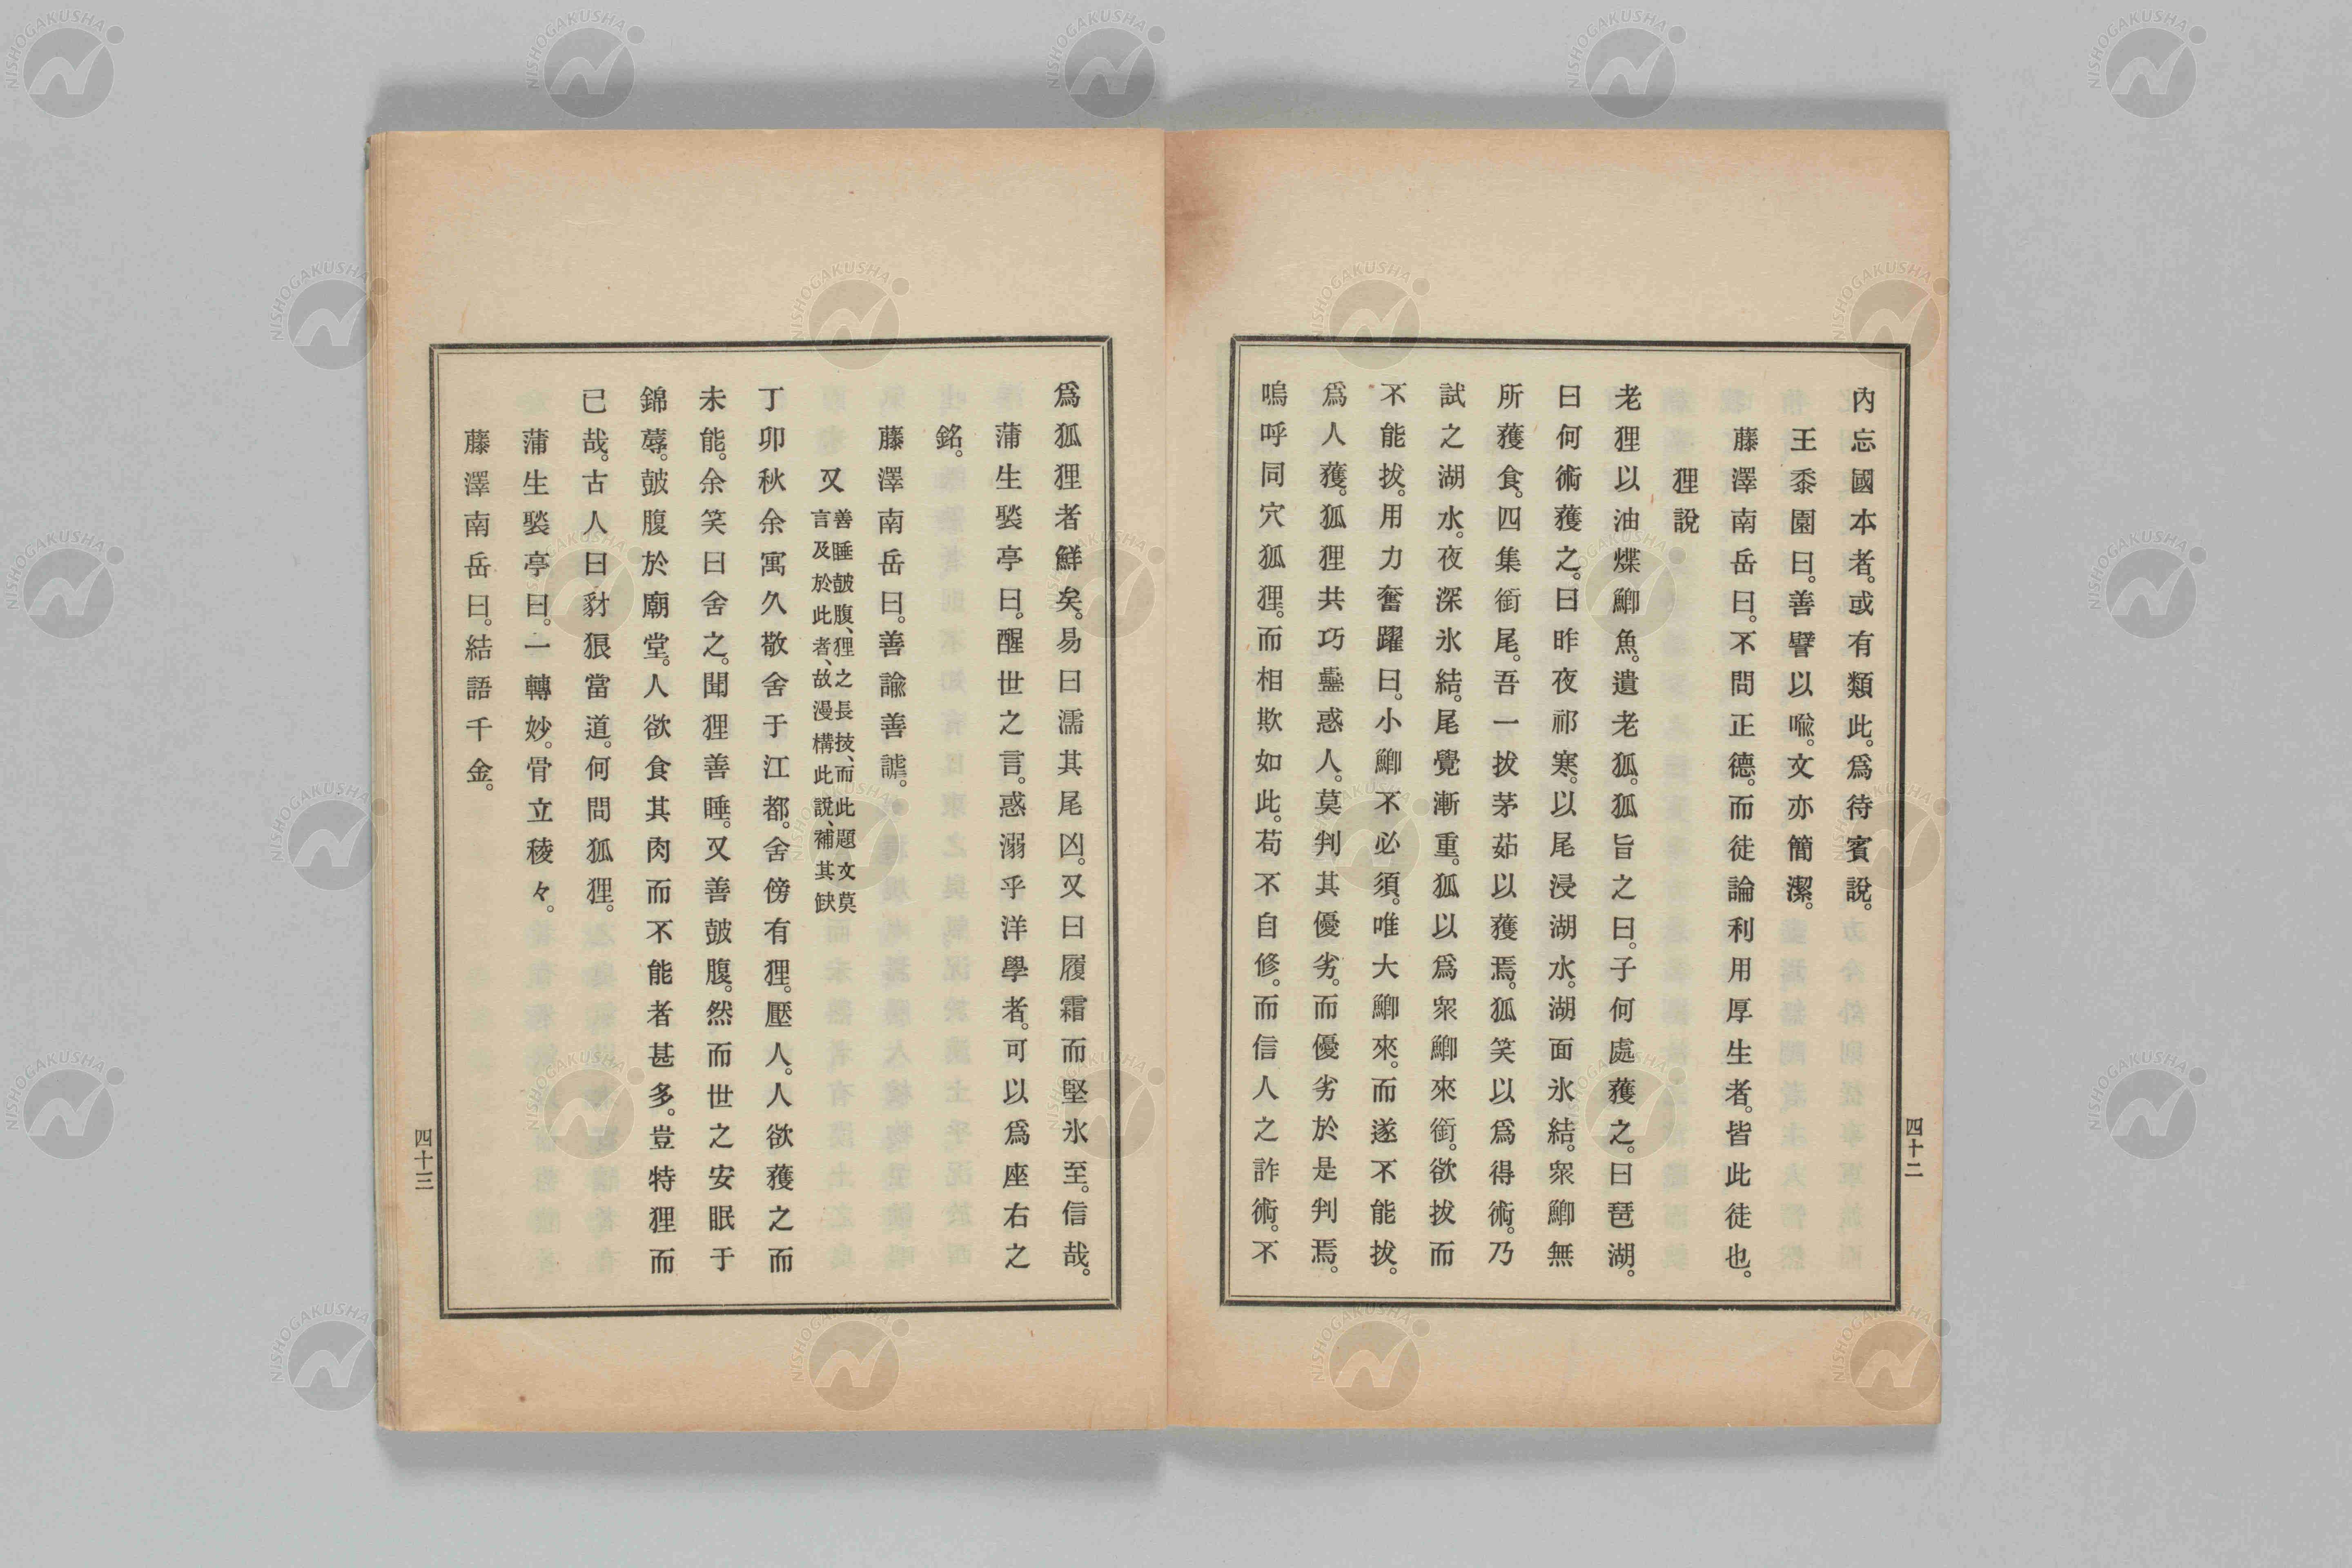 內忘國本者。或有類此。爲待賓說。
王黍園曰。善譬以喩。文亦簡潔。
藤澤南岳曰。不問正德。而徒論利用厚生者。皆此徒也。
狸說
老狸以油煠鯽魚。遺老狐。狐旨之曰。子何處獲之。曰琶湖。
曰何術獲之。曰昨夜祁寒。以尾浸湖水。湖面氷結。衆鯽無
所獲食。四集銜尾。吾一拔茅茹以獲焉。狐笑以爲得術。乃
試之湖水。夜深氷結。尾覺漸重。狐以爲衆鯽來銜。欲拔而
不能拔。用力奮躍曰。小鯽不必須。唯大鯽來。而遂不能拔。
爲人獲。狐狸共巧蠱惑人。莫判其優劣。而優劣於是判焉。
嗚呼同穴狐狸。而相欺如此。苟不自修。而信人之詐術。不
四十二
爲狐狸者鮮矣。易曰濡其尾凶。又曰履霜而堅氷至。信哉。
蒲生褧亭曰。醒世之言。惑溺乎洋學者。可以爲座右之
銘。
藤澤南岳曰。善諭善謔。
又 善睡皷腹、狸之長技、而此題文莫
言及於此者、故漫構此說、補其缺
丁卯秋余寓久敬舍于江都。舍傍有狸。壓人。人欲獲之而
未能。余笑曰舍之。聞狸善睡。又善皷腹。然而世之安眠于
錦蓐。皷腹於廟堂。人欲食其肉而不能者甚多。豈特狸而
已哉。古人曰豺狼當道。何問狐狸。
蒲生褧亭曰。一轉妙。骨立稜々。
藤澤南岳曰。結語千金。
四十三
NISHOGAKUSHA